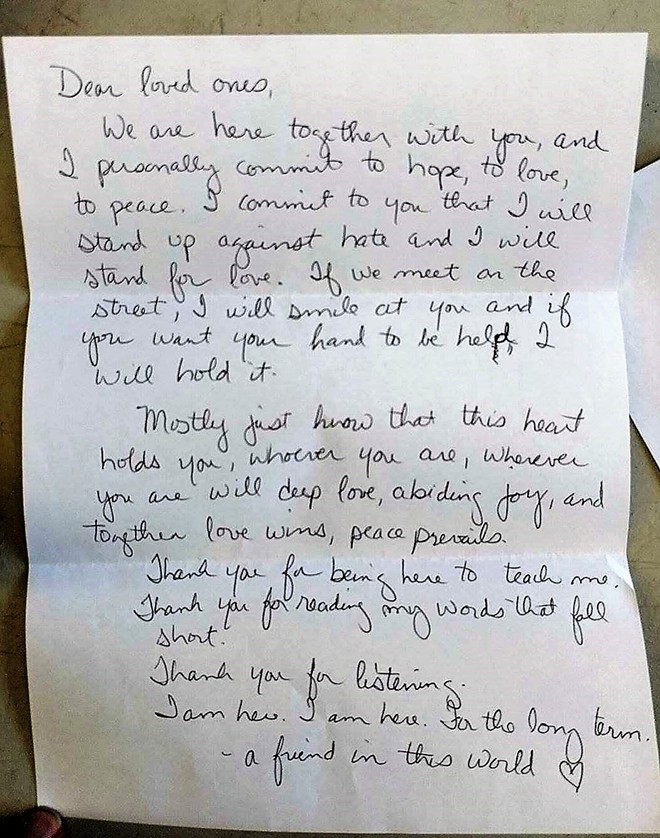 Dear loved ones,
We are here together with you, and
I personally commit to hope, to love,
to peace. I commit to you that I will
stand up against hate and I will
stand for love. If we meet on the
street, I will smile at you and if
you want your hand to be held, I
will hold it.
Mostly just know that this heart
holds you, whoever you are, wherever
you are will deep love, abiding joy, and
together love wins, peace prevails.
Thank you for being here to teach me.
Thank you for reading my words that fall
short.
Thank you for listening.
I am here. I am here. For the long term.
- a friend in this world ♡